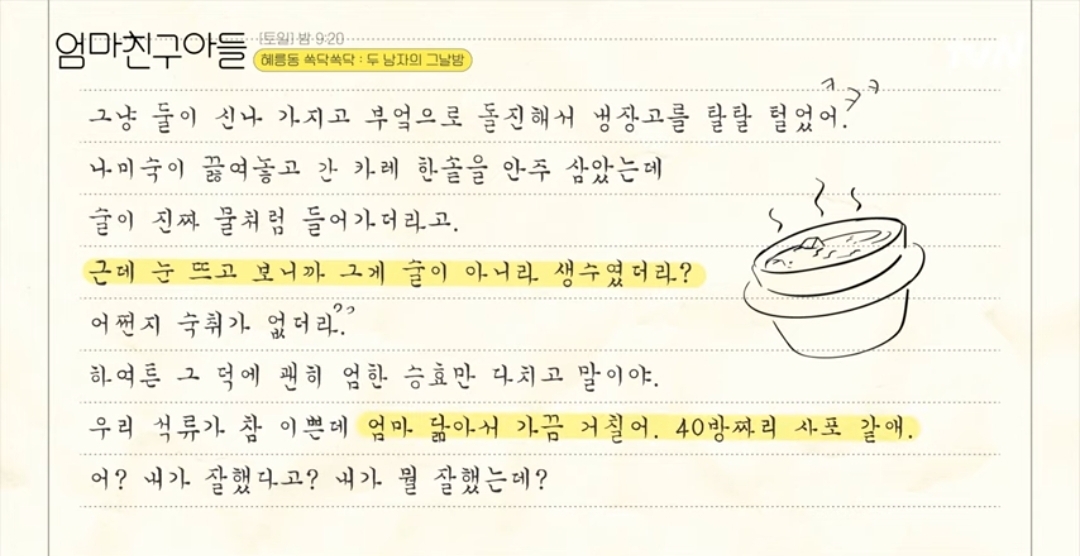 엄마친구아들
[토일] 밤 9:20
혜릉동 쏙닥쏙닥 : 두 남자의 그날밤
tvN
그냥 둘이 신나 가지고 부엌으로 돌진해서 냉장고를 탈탈 털었어. ㅋㅋㅋ
나미숙이 끓여놓고 간 카레 한솥을 안주 삼았는데
술이 진짜 물처럼 들어가더라고.
근데 눈 뜨고 보니까 그게 술이 아니라 생수였더라?
어쩐지 숙취가 없더라??
하여튼 그 덕에 괜히 엄한 승효만 다치고 말이야.
우리 석류가 참 이쁜데 엄마 닮아서 가끔 거칠어. 40방짜리 사포 같애.
어? 내가 잘했다고? 내가 뭘 잘했는데?